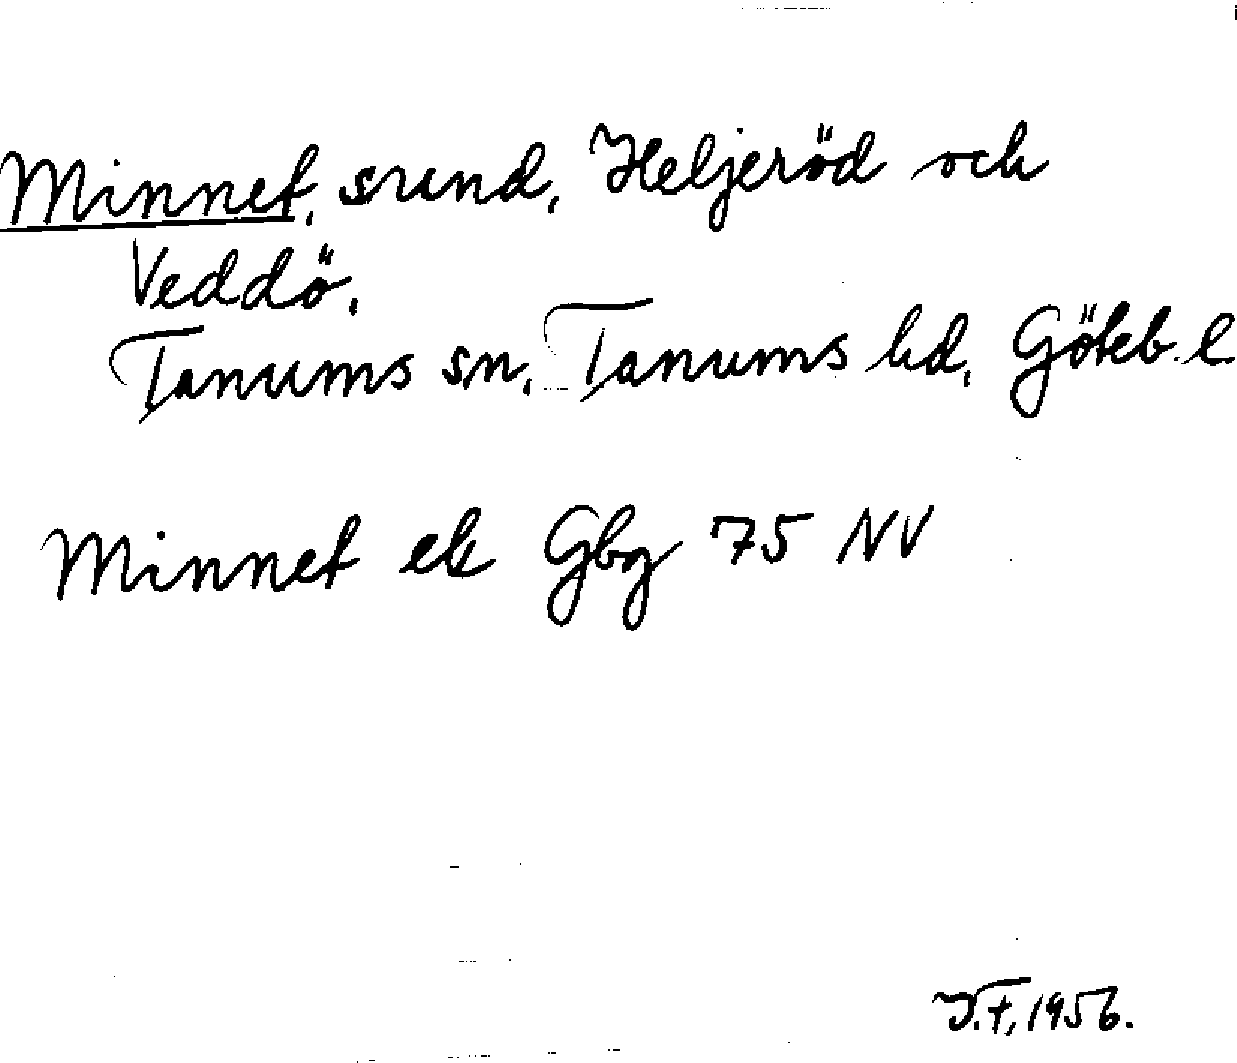 Minnet, sund, Heljeröd och
Veddö,
Tanums sn, Tanums hd, Göteb. l
Minnet ek Gbg 75 NV
J.F, 1956.